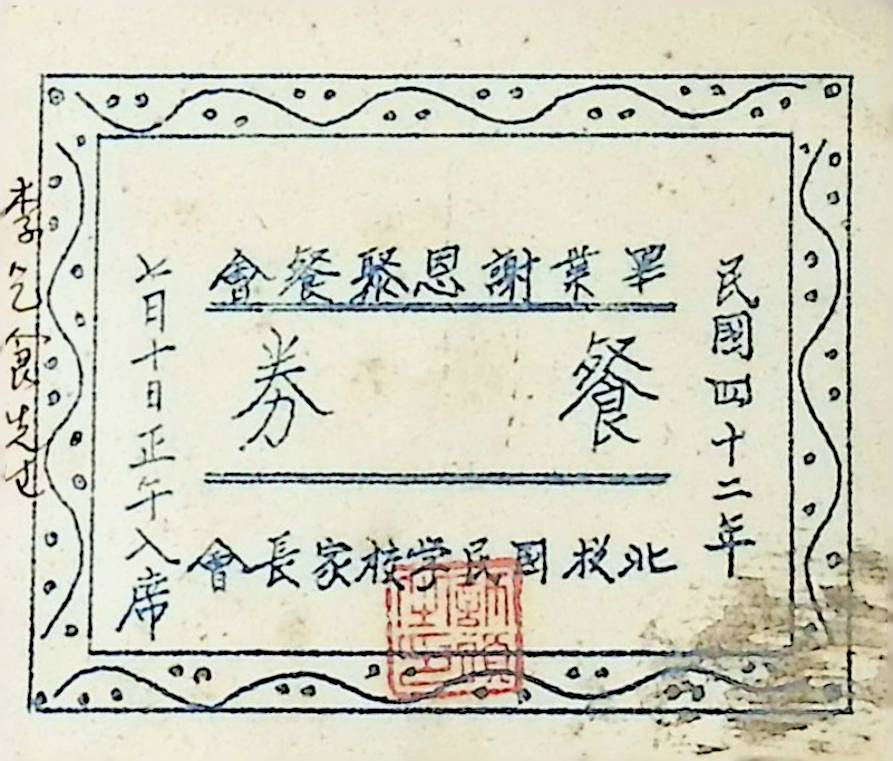 民國四十二年
畢業謝恩聚餐會
餐券
北投國民学校家長會
七月十日正午入席
李乞食先生